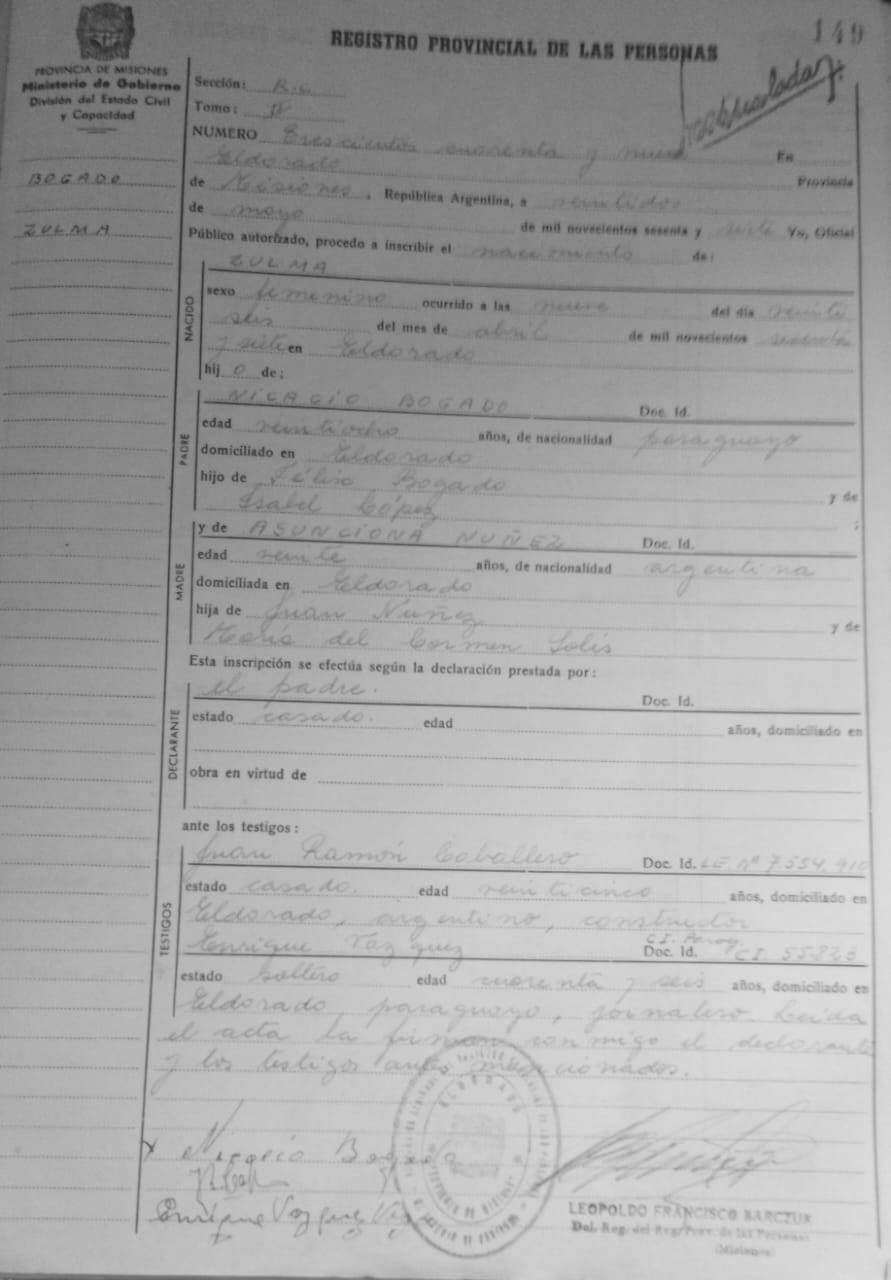 149
REGISTRO PROVINCIAL DE LAS PERSONAS
PROVINCIA DE MISIONES
Ministerio de Gobierno
División del Estado Civil
y Capacidad
Sección: B.C.
Tomo: II
NUMERO Trescientos cuarenta y nueve En
Eldorado Provincia
BOGADO
de Misiones, República Argentina, a veintidos
de mayo de mil novecientos sesenta y siete Yo, Oficial
ZULMA
Público autorizado, procedo a inscribir el nacimiento de:
NACIDO
ZULMA
sexo femenino ocurrido a las nueve del día veinti
seis del mes de abril de mil novecientos sesenta
y siete en Eldorado
hij o de:
PADRE
NICACIO BOGADO Doc. Id.
edad veintiocho años, de nacionalidad paraguayo
domiciliado en Eldorado
hijo de Bogado y de
Isabel López ;
MADRE
y de ASUNCIONA NUÑEZ Doc. Id.
edad veinte años, de nacionalidad argentina
domiciliada en Eldorado
hija de Juan Nuñez y de
María del Carmen Solis
Esta inscripción se efectúa según la declaración prestada por:
DECLARANTE
el padre. Doc. Id.
estado casado. edad años, domiciliado en
obra en virtud de
ante los testigos:
TESTIGOS
Juan Ramón Caballero Doc. Id. LE Nº 7.554.910
estado casado. edad veinticinco años, domiciliado en
Eldorado, argentino, constructor
Enrique Vazquez Doc. Id. CI
estado soltero edad cuarenta y seis años, domiciliado en
Eldorado, paraguayo, jornalero. Leída
el acta la firman conmigo el declarante
y los testigos antes mencionados.
Nicacio Bogado
Enrique Vazquez
LEOPOLDO FRANCISCO BARCZUK
Del. Reg. del Reg. Prov. de las Personas
(Misiones)